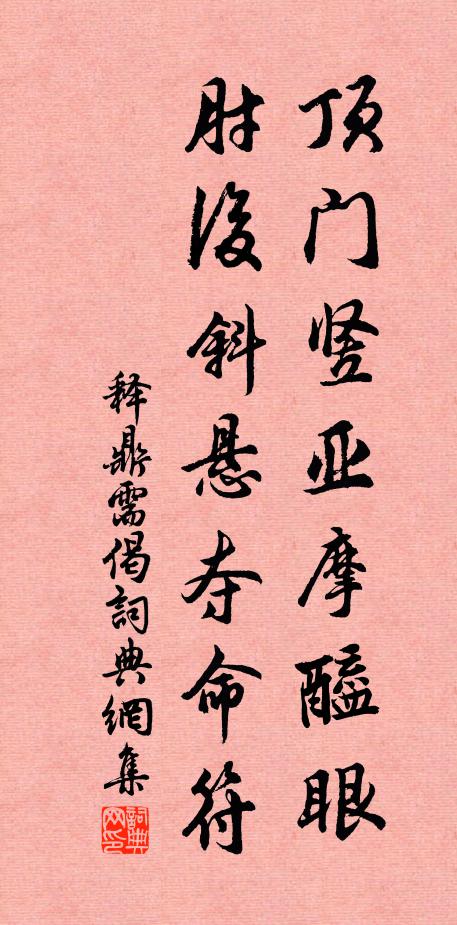 顶门竖亚摩醯眼
肘後斜悬夺命符
释鼎需偈詞典網集
詞典网印